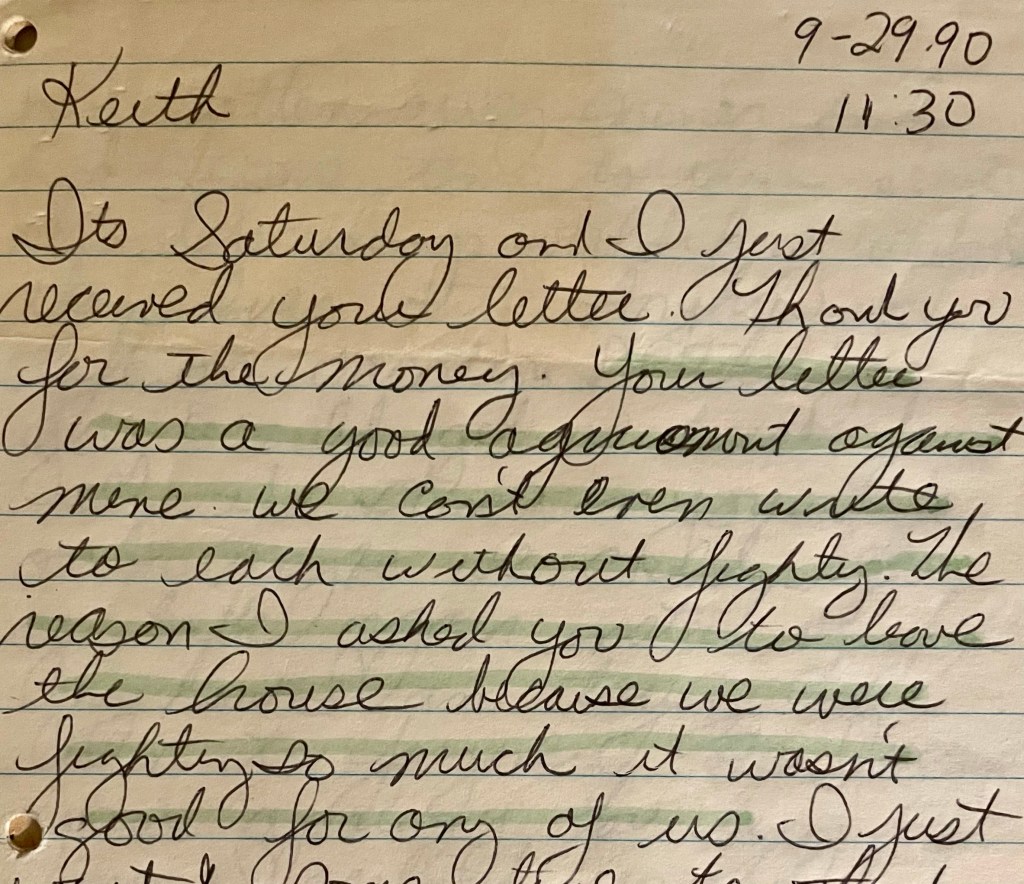 9-29.90
Keith
11:30
Its Saturday and I just
received your letter. Thank you
for the money. Your letter
was a good agrueomnt against
mine. we can't even write,
to each without fighty. The
reason I asked you to leave
the house because we were
fighting so much it wasn't
good for any of us. I just